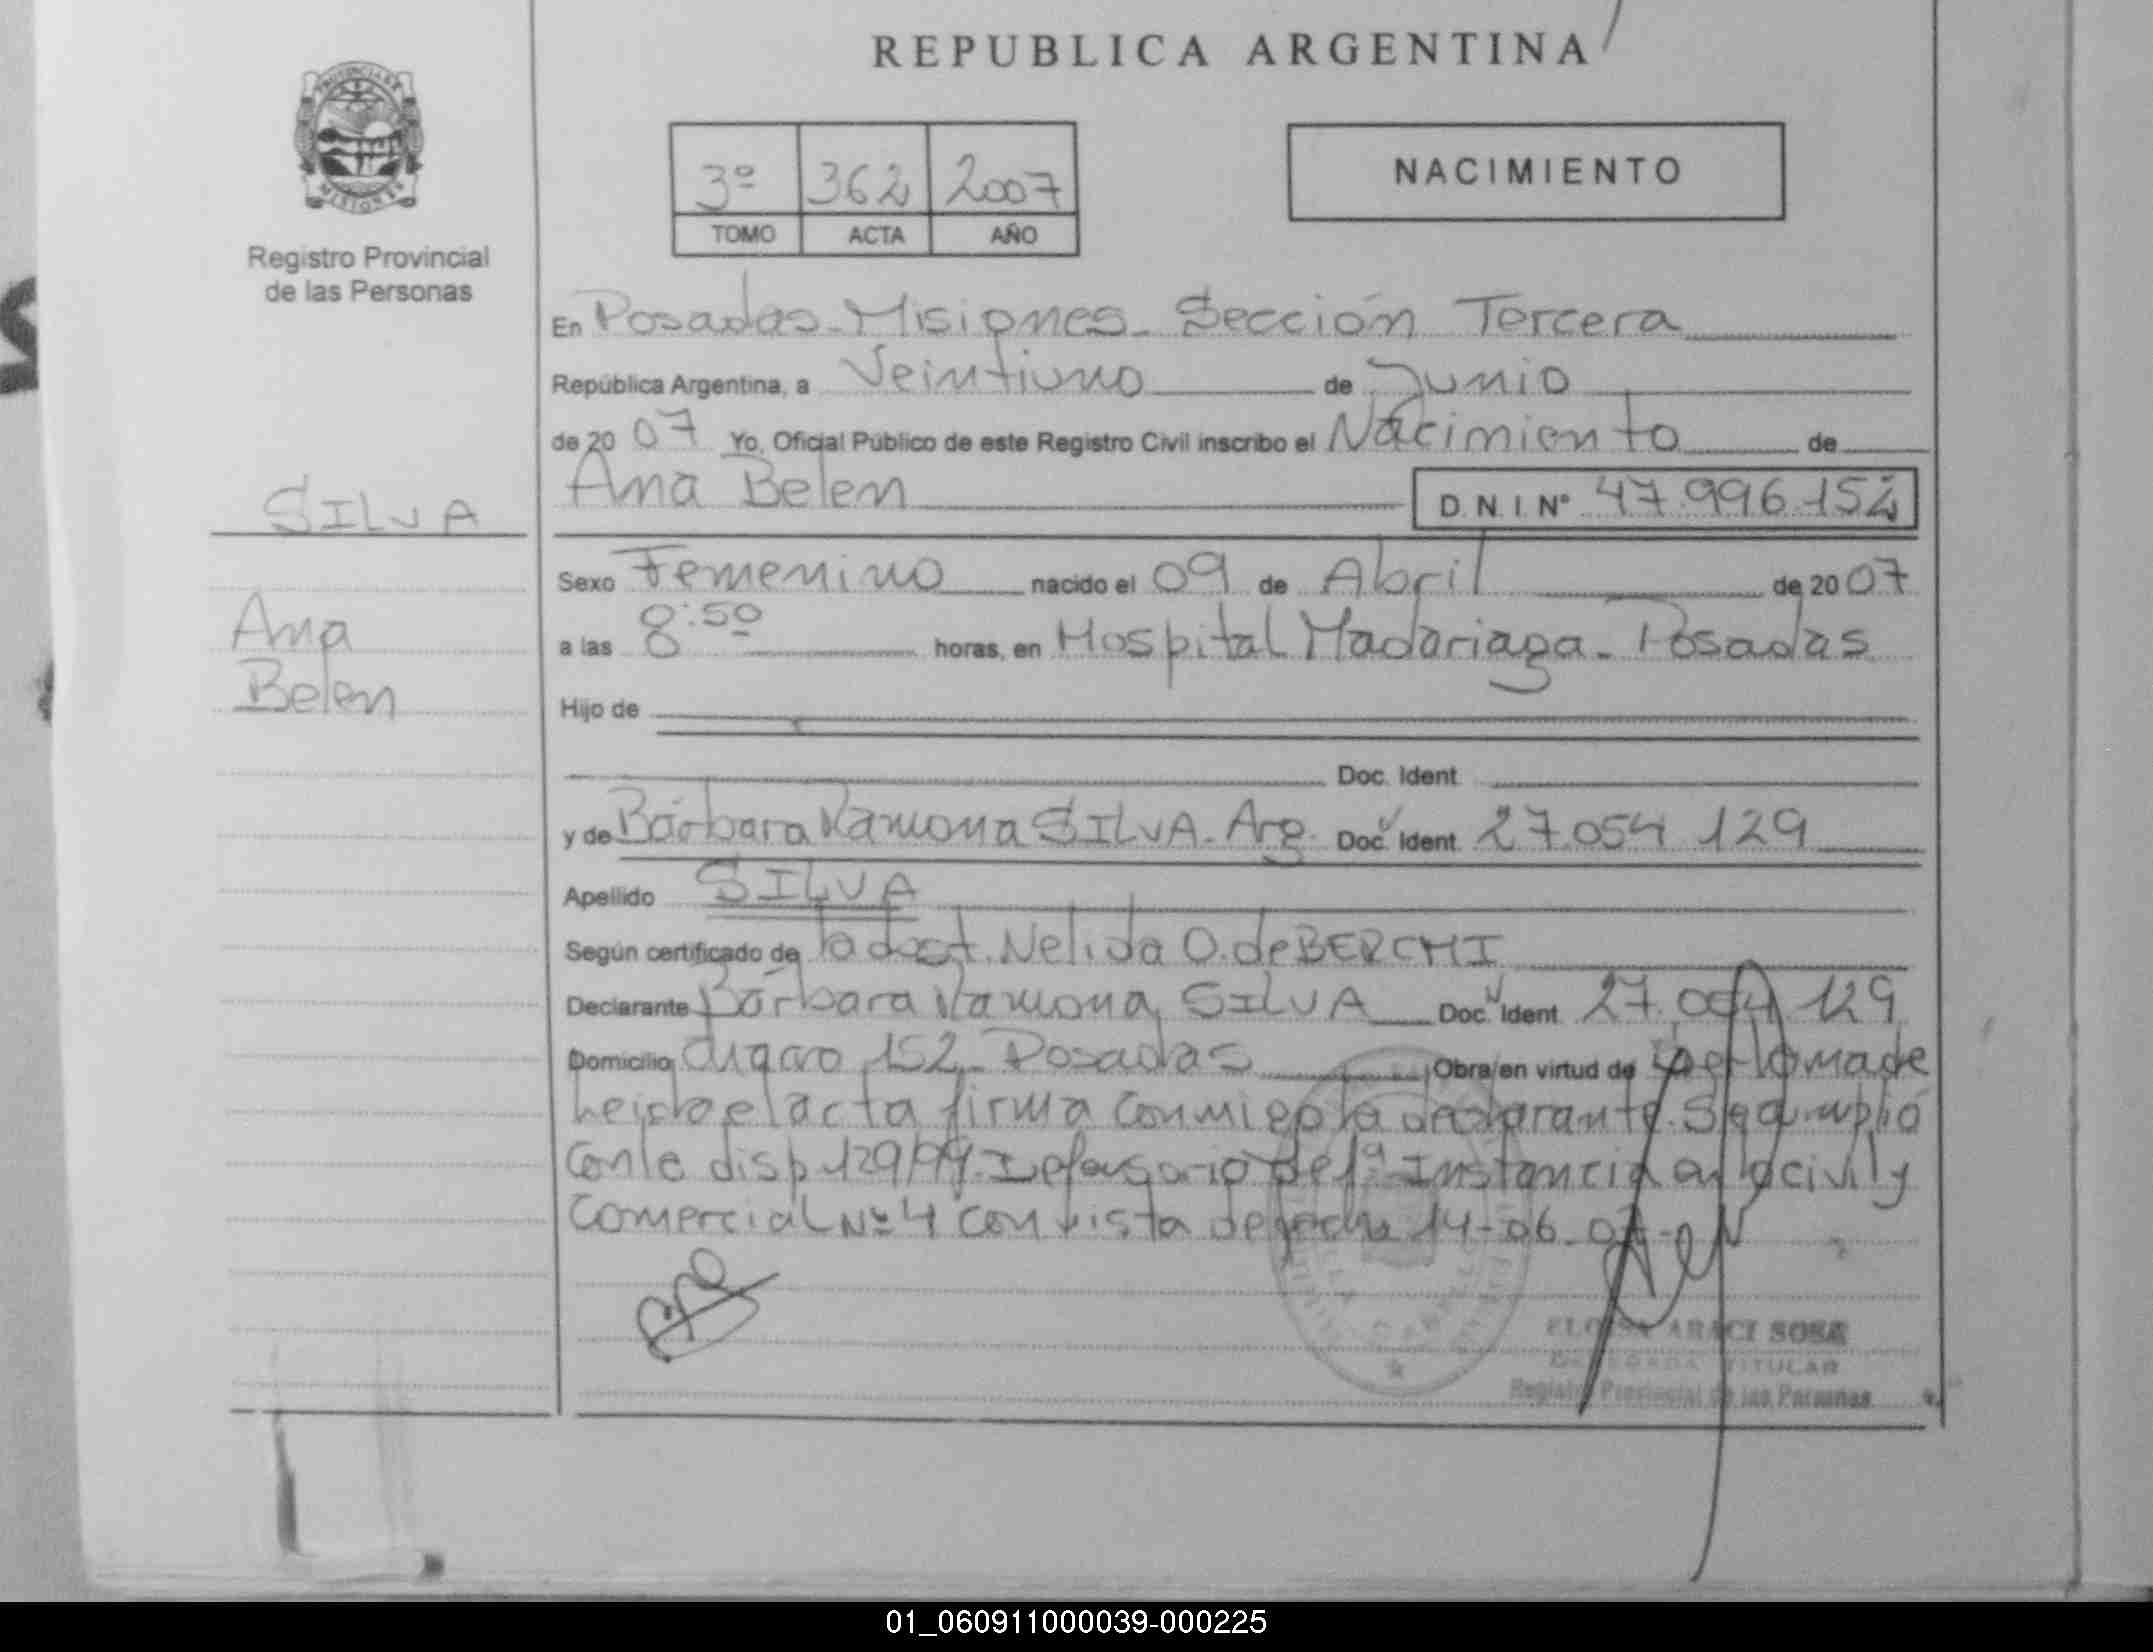 REPUBLICA ARGENTINA
PROVINCIA DE
MISIONES
Registro Provincial
de las Personas
3º 362 2007
TOMO ACTA AÑO
NACIMIENTO
En Posadas-Misiones- Sección Tercera
República Argentina, a Veintiuno de Junio
de 20 07 Yo, Oficial Público de este Registro Civil inscribo el Nacimiento de
Ana Belen D.N.I. Nº 47.996.152
SILVA
Ana
Belen
Sexo Femenino nacido el 09 de Abril de 20 07
a las 8:50 horas, en Hospital Madariaga- Posadas
Hijo de
Doc. Ident
y de Bárbara Ramona SILVA- Arg. Doc. Ident. 27.054 129
Apellido SILVA
Según certificado de la dost. Nelida O. de BERCHI
Declarante Bárbara Ramona SILVA Doc. Ident 27.054 129
Domicilio 152- Posadas Obra/en virtud de
Leida el acta firma conmigo la declarante. Se cumplió
con la disp 129/99. Defensoria de 1ª Instancia en lo civil y
Comercial Nº 4 con vista de fecha 14-06-07-
ELOISA ARACI SOSA
DELEGADA TITULAR
Registro Provincial de las Personas
01_060911000039-000225